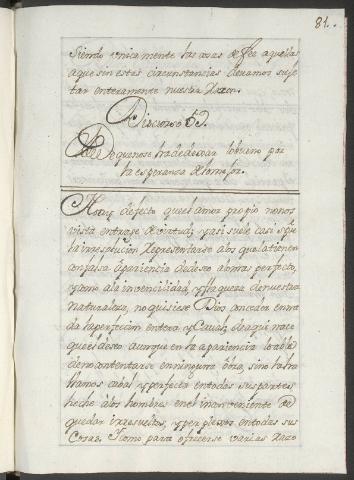 81.
Siendo unicamente las cosas de Fee aquellas
aque sin estas circunstancias devamos suje
tar enteramente nuestra Razon.
Discurso 69.
De que no se ha de dexar lo bueno por
la esperanza de lo mejor.
No ay defecto que el amor propio no nos
vista en trase de virtud; y asi suele casi
la irresolucion Representarse a los que la tienen
con falsa apariencia de deseo a lo mas perfecto,
y como a la invencilidad, y flaqueza de nuestra
naturaleza, no quisiese Dios conceder en na
da la perfeccion entera y Caval, de aqui nace
que el deseo aunque en la apariencia loable
de no contentarse en ninguna sino la ha
llamos cabal y perfecta en todas sus partes,
heche a los hombres en el inconveniente de
quedar irresueltos, y perplexos en todas sus
Cosas. Y como para ofrecerse varias Razo